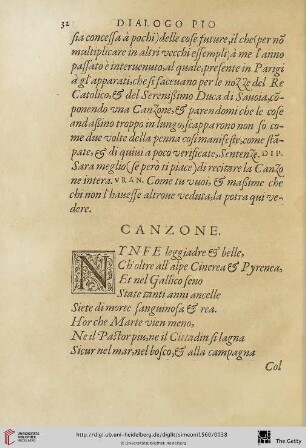 32 DIALOGO PIO
sia concessa à pochi) delle cose future, il che per nõ
multiplicare in altri vecchi essempli, à me l'anno
passato è interuenuto, al quale, presente in Parigi
a gl'apparati, che si faceuano per le nozze del Re
Catolico, & del Serenissimo Duca di Sauoia, cõ
ponendo vna Canzone, & parendomi che le cose
andassino troppo in lungo, scapparono non so co
me due volte della penna cosi manifeste, come stã
pate, & di quiui a poco verificate, Sentenze. DIP.
Sara meglio (se però ti piace) di recitare la Canzo
ne intera. VRAN. Come tu vuoi, & maßime che
chi non l'hauesse altroue veduta, la potra qui ve-
dere.
CANZONE.
NYNFE leggiadre & belle,
Ch'oltre all'alpe Cinerea & Pyrenea,
Et nel Gallico seno
State tanti anni ancelle
Siete di morte sanguinosa & rea.
Hor che Marte vien meno,
Ne il Pastor piu, ne il Cittadin si lagna
Sicur nel mar, nel bosco, & alla campagna
Col
UNIVERSITÄTS-
BIBLIOTHEK
HEIDELBERG
http://digi.ub.uni-heidelberg.de/diglit/simeoni1560/0038
© Universitätsbibliothek Heidelberg
The Getty